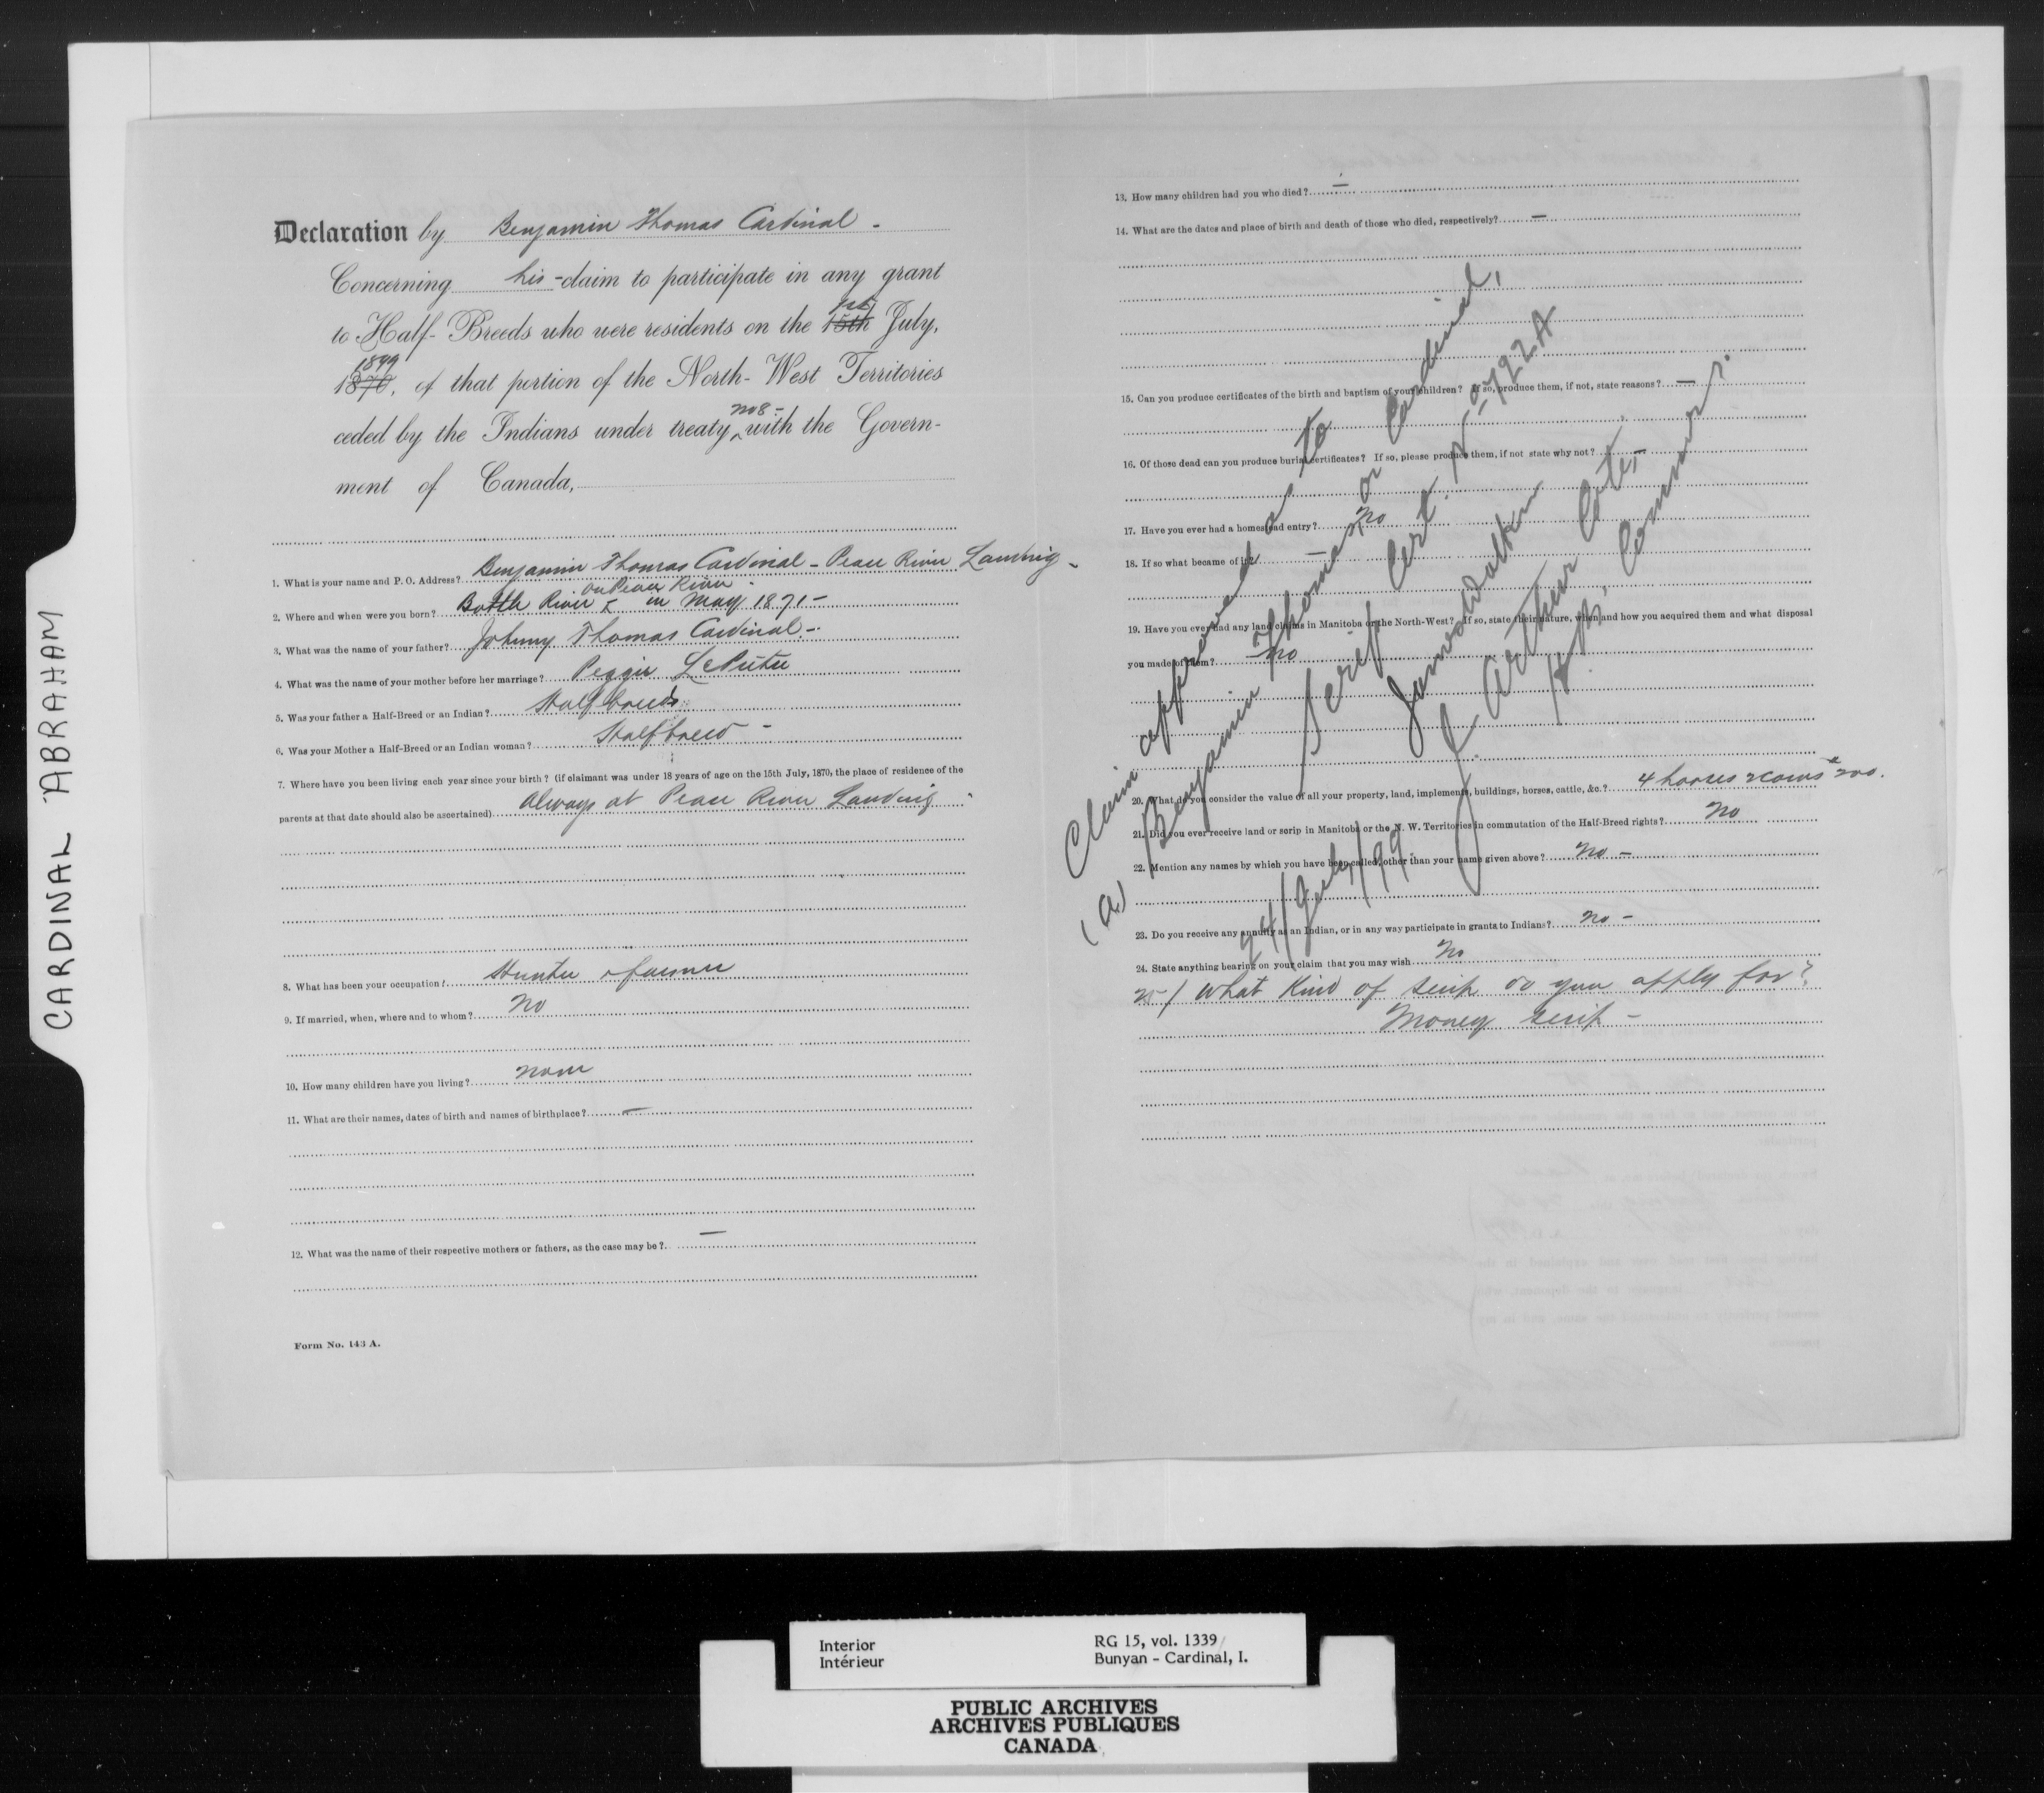 CARDINAL ABRAHAM
Declaration by Benjamin Thomas Cardinal -
Concerning his - claim to participate in any grant
to Half-Breeds who were residents on the 15th 1st July,
1870, 1899 of that portion of the North-West Territories
ceded by the Indians under treaty no 8 - with the Govern-
ment of Canada,
1. What is your name and P. O. Address? Benjamin Thomas Cardinal - Peace River Landing -
on Peace River
2. Where and when were you born? Battle River in May 1871 -
3. What was the name of your father? Johnny Thomas Cardinal -
4. What was the name of your mother before her marriage? Peggie
5. Was your father a Half-Breed or an Indian? Half breed
6. Was your Mother a Half-Breed or an Indian woman? Half breed -
7. Where have you been living each year since your birth? (if claimant was under 18 years of age on the 15th July, 1870, the place of residence of the
parents at that date should also be ascertained) Always at Peace River Landing -
8. What has been your occupation? Hunter & farmer
9. If married, when, where and to whom? No
10. How many children have you living? none
11. What are their names, dates of birth and names of birthplace? -
12. What was the name of their respective mothers or fathers, as the case may be? -
Form No. 143 A.
13. How many children had you who died? -
14. What are the dates and place of birth and death of those who died, respectively? -
15. Can you produce certificates of the birth and baptism of your children? If so, produce them, if not, state reasons? -
16. Of those dead can you produce burial certificates? If so, please produce them, if not state why not? -
17. Have you ever had a homestead entry? No
18. If so what became of it? -
19. Have you ever had any land claims in Manitoba or the North-West? If so, state their nature, when and how you acquired them and what disposal
you made of them? No
20. What do you consider the value of all your property, land, implements, buildings, horses, cattle, &c.? 4 horses 2 cows $200.
21. Did you ever receive land or scrip in Manitoba or the N. W. Territories in commutation of the Half-Breed rights? No
22. Mention any names by which you have been called, other than your name given above? No -
23. Do you receive any annuity as an Indian, or in any way participate in grants to Indians? No -
24. State anything bearing on your claim that you may wish No
25/ What kind of scrip do you apply for?
Money scrip -
Claim approved as to
(a) Benjamin Thomas or Cardinal,
Scrip Cert. No 792 A
James Walker
J. Arthur Coté,
H. B. Commrs.
24/July/99
Interior
Intérieur
RG 15, vol. 1339
Bunyan - Cardinal, I.
PUBLIC ARCHIVES
ARCHIVES PUBLIQUES
CANADA